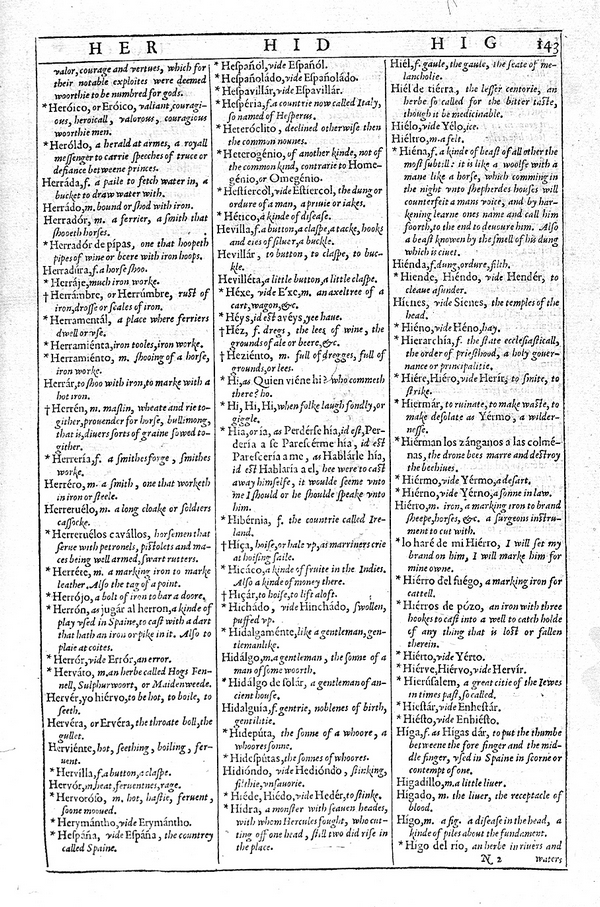 HER HID HIG 143
valor, courage and vertues, which for
their notable exploites were deemed
woorthie to be numbred for gods.
* Heróico, or Eróico, valiant, couragi-
ous, heroicall, valorous, couragious
woorthie men.
* Heróldo, a herald at armes, a royall
messenger to carrie speeches of truce or
defiance betweene princes.
Herráda, f. a paile to fetch water in, a
bucket to draw water with.
Herrádo, m. bound or shod with iron.
Herradór, m. a ferrier, a smith that
shooeth horses.
* Herradór de pípas, one that hoopeth
pipes of wine or beere with iron hoops.
Herradúra, f. a horse shoo.
* Herráje, much iron worke.
† Herrámbre, or Herrúmbre, rust of
iron, drosse or scales of iron.
* Herramentál, a place where ferriers
dwell or vse.
* Herramiénta, iron tooles, iron worke.
* Herramiénto, m. shooing of a horse,
iron worke.
Herrár, to shoo with iron, to marke with a
hot iron.
† Herrén, m. maslin, wheate and rie to-
gither, prouender for horse, bullimong,
that is, diuers sorts of graine sowed to-
gither.
* Herrería, f. a smithes forge, smithes
worke.
Herréro, m. a smith, one that worketh
in iron or steele.
Herreruélo, m. a long cloake or soldiers
cassocke.
* Herreruélos cavállos, horsemen that
serue with petronels, pistolets and ma-
ces being well armed, swart rutters.
* Herréte, m. a marking iron to marke
leather. Also the tag of a point.
* Herrójo, a bolt of iron to bar a doore.
* Herrón, as jugár al herron, a kinde of
play vsed in Spaine, to cast with a dart
that hath an iron or pike in it. Also to
plaie at coites.
* Herrór, vide Errór, an error.
* Herváto, m. an herbe called Hogs Fen-
nell, Sulphurwoort, or Maidenweede.
Hervér, yo hiérvo, to be hot, to boile, to
seeth.
Hervéra, or Ervéra, the throate boll, the
gullet.
Herviénte, hot, seething, boiling, fer-
uent.
* Hervílla, f. a button, a claspe.
Hervór, m. heat, feruentnes, rage.
* Hervoróso, m. hot, hastie, feruent,
soone mooued.
* Herymántho, vide Erymántho.
* Hespáña, vide Espáña, the countrey
called Spaine.
* Hespañól, vide Español.
* Hespañoládo, vide Españoládo.
* Hespavillár, vide Espavillár.
* Hespéria, f. a countrie now called Italy,
so named of Hesperus.
* Heteróclito, declined otherwise then
the common nounes.
* Heterogénio, of another kinde, not of
the common kind, contrarie to Home-
génio, or Omegénio.
* Hestiercol, vide Estiercol, the dung or
ordure of a man, a priuie or iakes.
* Hético, a kinde of disease.
Hevílla, f. a button, a claspe, a tacke, hooks
and eies of siluer, a buckle.
Hevillár, to button, to claspe, to buc-
kle.
Hevilléta, a little button, a little claspe.
* Héxe, vide E'xe, m. an axeltree of a
cart, wagon, &c.
* Héys, id est avéys, yee haue.
† Héz, f. dregs, the lees of wine, the
grounds of ale or beere, &c.
† Heziénto, m. full of dregges, full of
grounds, or lees.
* Hi, as Quien viéne hi? who commeth
there? ho.
* Hi, Hi, Hi, when folke laugh fondly, or
giggle.
* Hia, or ia, as Perdérse hía, id est, Per-
dería a se Parescérme hía, id est
Paresceria a me, as Hablárle hía,
id est Hablaría a el, hee were to cast
away himselfe, it woulde seeme vnto
me I should or he shoulde speake vnto
him.
* Hibérnia, f. the countrie called Ire-
land.
† Hiça, hoise, or hale vp, as marriners crie
at hoising saile.
* Hicáco, a kinde of fruite in the Indies.
Also a kinde of money there.
† Hiçár, to hoise, to lift aloft.
* Hichádo, vide Hinchádo, swollen,
puffed vp.
* Hidalgaménte, like a gentleman, gen-
tlemanlike.
Hidálgo, m. a gentleman, the sonne of a
man of some woorth.
* Hidálgo de solár, a gentleman of an-
cient house.
Hidalguía, f. gentrie, noblenes of birth,
gentilitie.
* Hidepúta, the sonne of a whoore, a
whooresonne.
* Hidespútas, the sonnes of whoores.
Hidióndo, vide Hedióndo, stinking,
filthie, vnsauorie.
* Hiéde, Hiédo, vide Hedér, to stinke.
* Hidra, a monster with seauen heades,
with whom Hercules fought, who cut-
ting off one head, still two did rise in
the place.
Hiél, f. gaule, the gaule, the seate of me-
lancholie.
Hiél de tiérra, the lesser centorie, an
herbe so called for the bitter taste,
though it be medicinable.
Hiélo, vide Yélo, ice.
Hiéltro, m. a felt.
* Hiéna, f. a kinde of beast of all other the
most subtill: it is like a woolfe with a
mane like a horse, which comming in
the night vnto shepherdes houses will
counterfeit a mans voice, and by har-
kening learne ones name and call him
foorth, to the end to deuoure him. Also
a beast knowen by the smell of his dung
which is ciuet.
Hiénda, f. dung, ordure, filth.
* Hiende, Hiéndo, vide Hendér, to
cleaue asunder.
Hienes, vide Sienes, the temples of the
head.
* Hiéno, vide Héno, hay.
* Hierarchía, f. the state ecclesiasticall,
the order of priesthood, a holy gouer-
nance or principalitie.
* Hiére, Hiéro, vide Herír, to smite, to
strike.
* Hiermár, to ruinate, to make waste, to
make desolate as Yérmo, a wilder-
nesse.
* Hiérman los zánganos a las colmé-
nas, the drone bees marre and destroy
the beehiues.
* Hiérmo, vide Yérmo, a desart.
* Hiérno, vide Yérno, a sonne in law.
Hiérro, m. iron, a marking iron to brand
sheepe, horses, &c. a surgeons instru-
ment to cut with.
* lo haré de mi Hiérro, I will set my
brand on him, I will marke him for
mine owne.
* Hiérro del fuégo, a marking iron for
cattell.
* Hiérros de pózo, an iron with three
hookes to cast into a well to catch holde
of any thing that is lost or fallen
therein.
* Hiérto, vide Yérto.
* Hiérve, Hiérvo, vide Hervír.
* Hierúsalem, a great citie of the Iewes
in times past, so called.
* Hiestár, vide Enhestár.
* Hiésto, vide Enhiésto.
Higa, f. as Higas dár, to put the thumbe
betweene the fore finger and the mid-
dle finger, vsed in Spaine in scorne or
contempt of one.
Higadíllo, m. a little liuer.
Hígado, m. the liuer, the receptacle of
blood.
Higo, m. a fig. a disease in the head, a
kinde of piles about the fundament.
* Higo del rio, an herbe in riuers and
N 2 waters